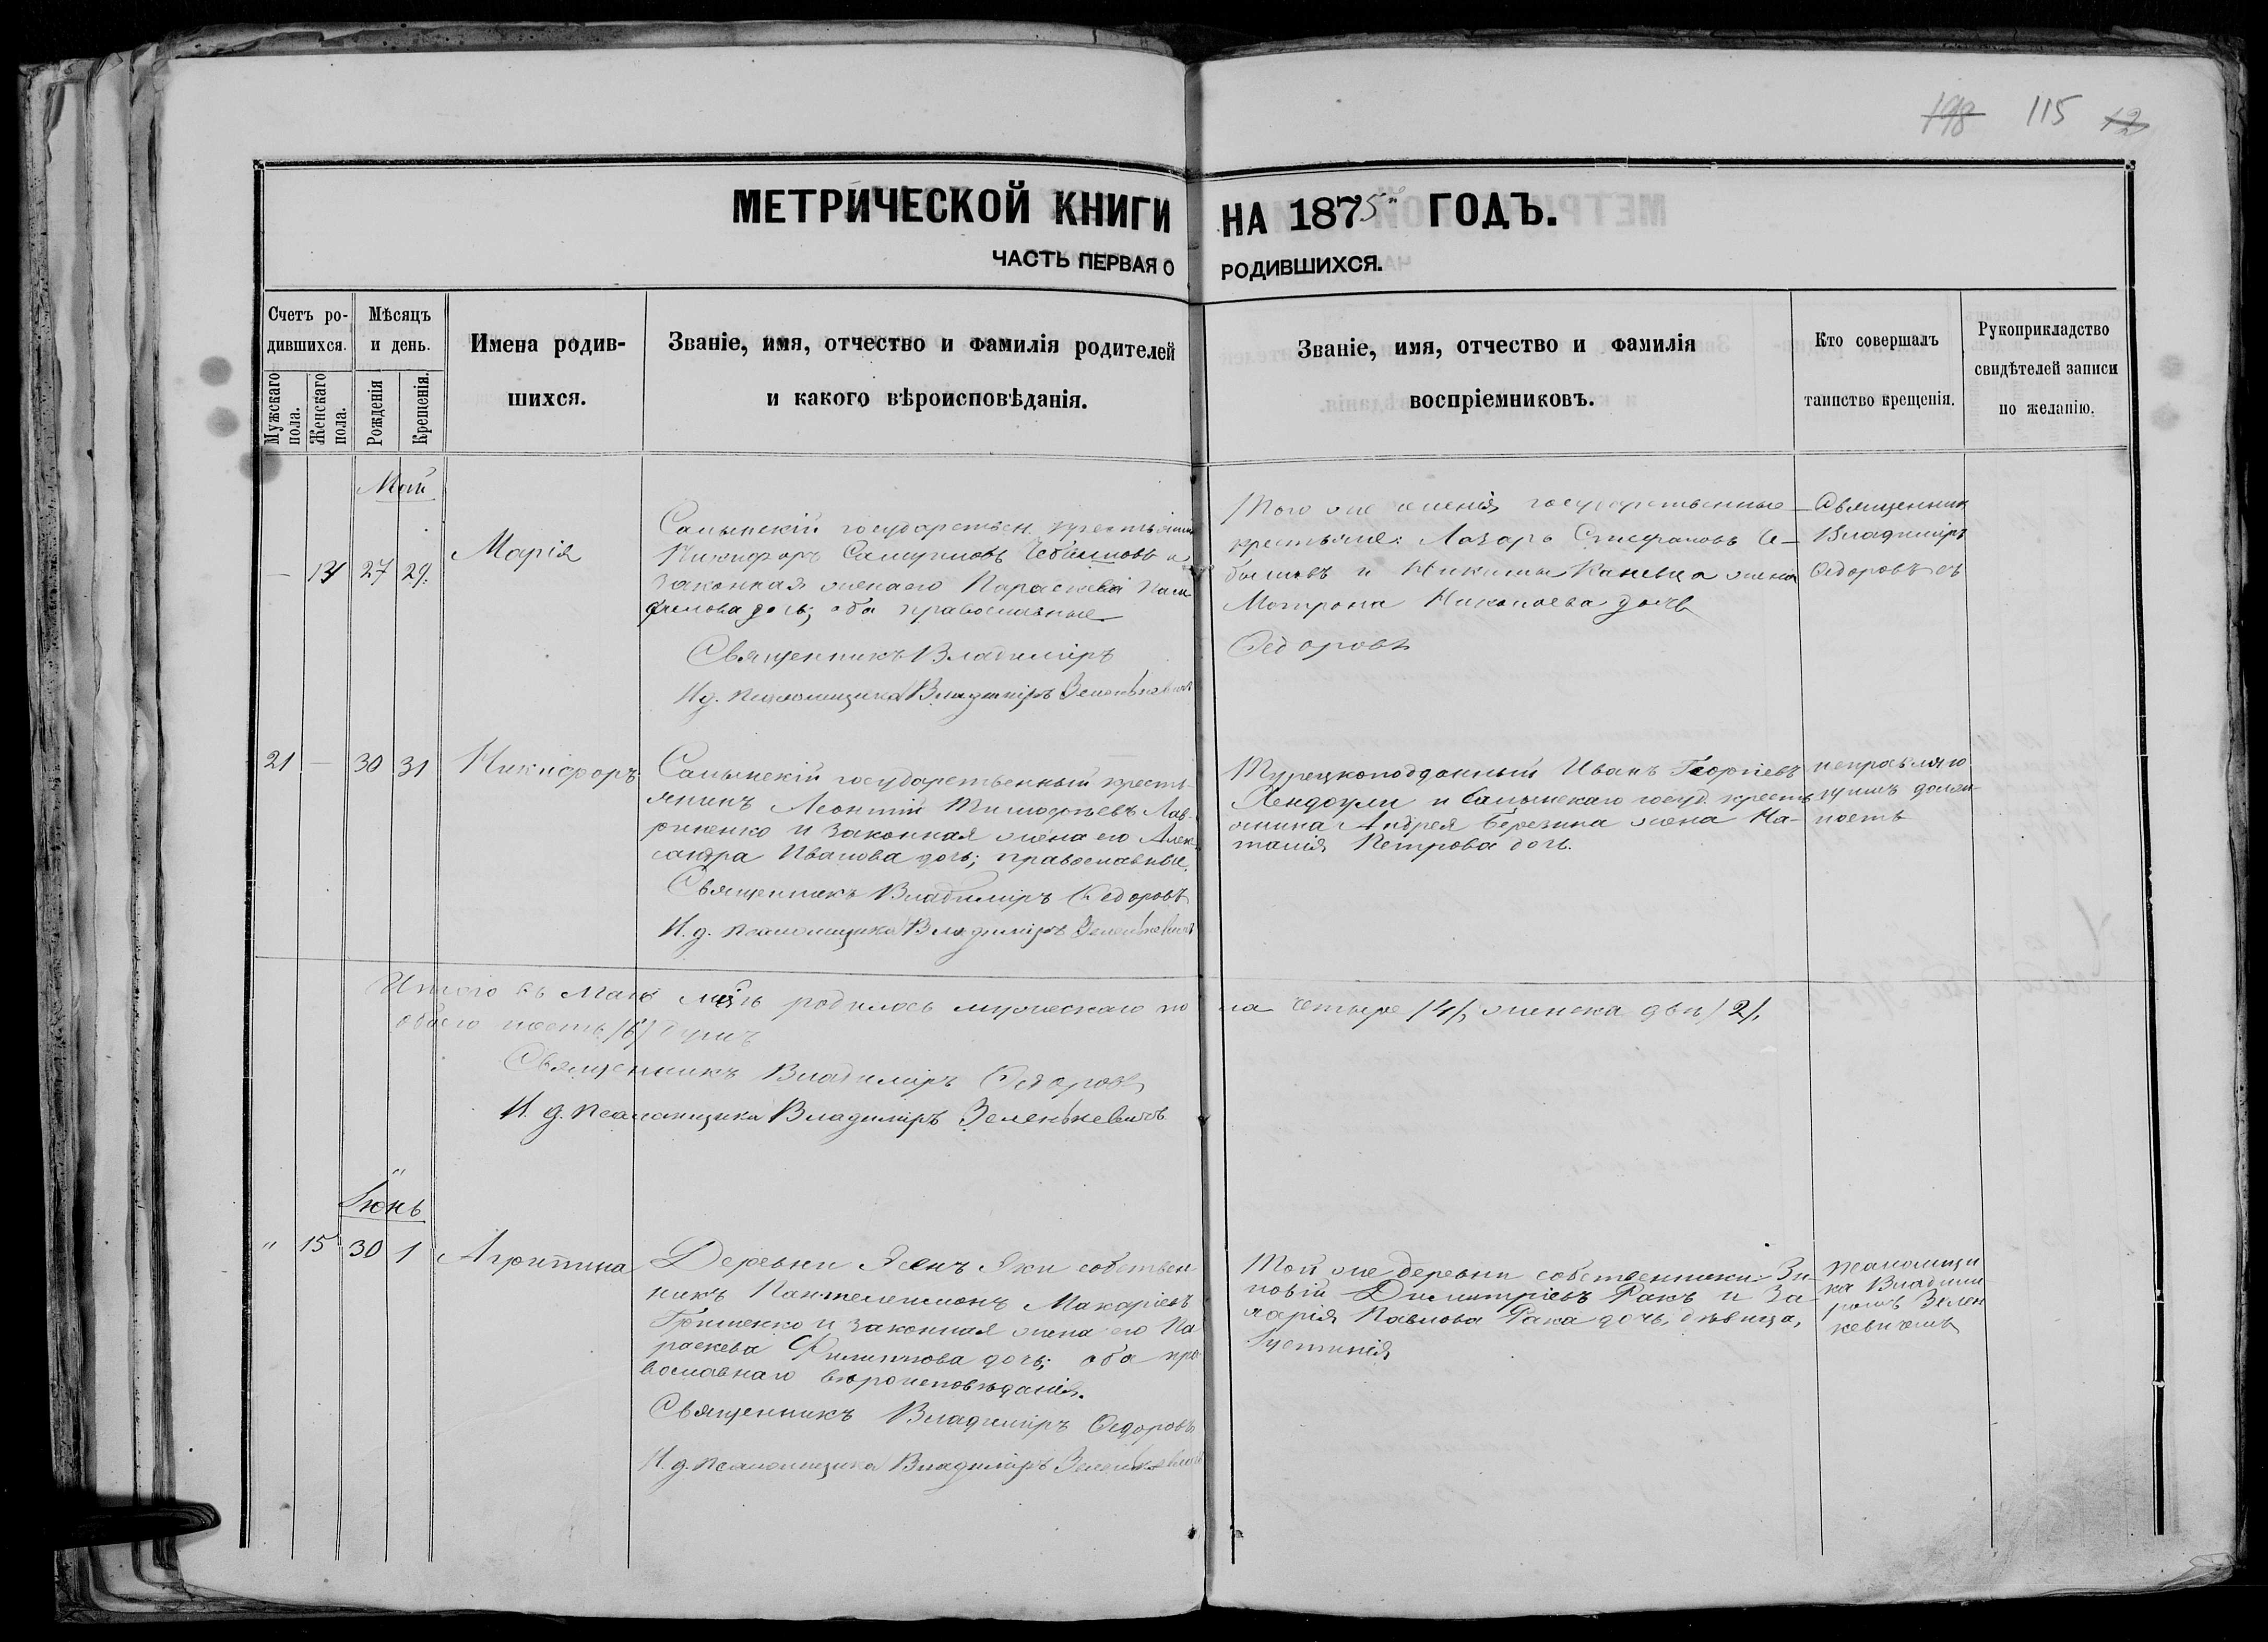 198 115 12
МЕТРИЧЕСКОЙ КНИГИ НА 1875й ГОДЪ.
ЧАСТЬ ПЕРВАЯ О РОДИВШИХСЯ.
Счетъ ро-
дившихся.
Мужскаго пола.
Женскаго пола.
Мѣсяцъ
и день.
Рожденія
Крещенія.
Имена родив-
шихся.
Званіе, имя, отчество и фамилія родителей
и какого вѣроисповѣданія.
Званіе, имя, отчество и фамилія
воспріемниковъ.
Кто совершалъ
таинство крещенія.
Рукоприкладство
свидѣтелей записи
по желанію.
Май
— 14 27 29.
Марія
государствен. крестьянинъ
Никифоръ
законная жена его Параскева
дочь, оба православные
Священникъ Владиміръ
И. д. псаломщика Владиміръ Зеленкевичъ
Того же имения государственные
крестьяне: Лазарь Стефановъ Че-
башовъ и Никиты Каневца жена
Матрона Николаева дочь
Федоровъ
Священник
Владиміръ
Федоровъ съ
21 — 30 31
Никифоръ
государственный кресть-
янинъ Леонтій Тимофѣевъ Лав-
риненко и законная жена его Алек-
сандра Иванова дочь; православные.
Священникъ Владиміръ Федоровъ
И. д. псаломщика Владиміръ Зеленкевичъ
Турецкоподданный Иванъ Георгіевъ
и госуд. кресть-
янина Андрея Березина жена На-
талія Петрова дочь.
исправляю-
щимъ долж-
ность
Итого въ Маѣ родилось мужескаго по ла четыре /4/, женска двѣ /2/,
обоего шесть /6/ душъ
Священникъ Владиміръ Федоровъ
И. д. псаломщика Владиміръ Зеленкевичъ
Іюнь
" 15 30 1
Агрипина
Деревни собствен-
никъ Пантелеимонъ Макаріевъ
Гриненко и законная жена его Па-
раскева Филиппова дочь; оба пра-
вославнаго вѣроисповѣданія.
Священникъ Владиміръ Федоровъ
И. д. псаломщика Владиміръ Зеленкевичъ
Той же деревни собственники: Зи-
новій Димитріевъ Ракъ и За-
харія Павлова Рака дочь, дѣвица,
Іустинія
псаломщи
ка Владими
ромъ Зелен
кевичемъ